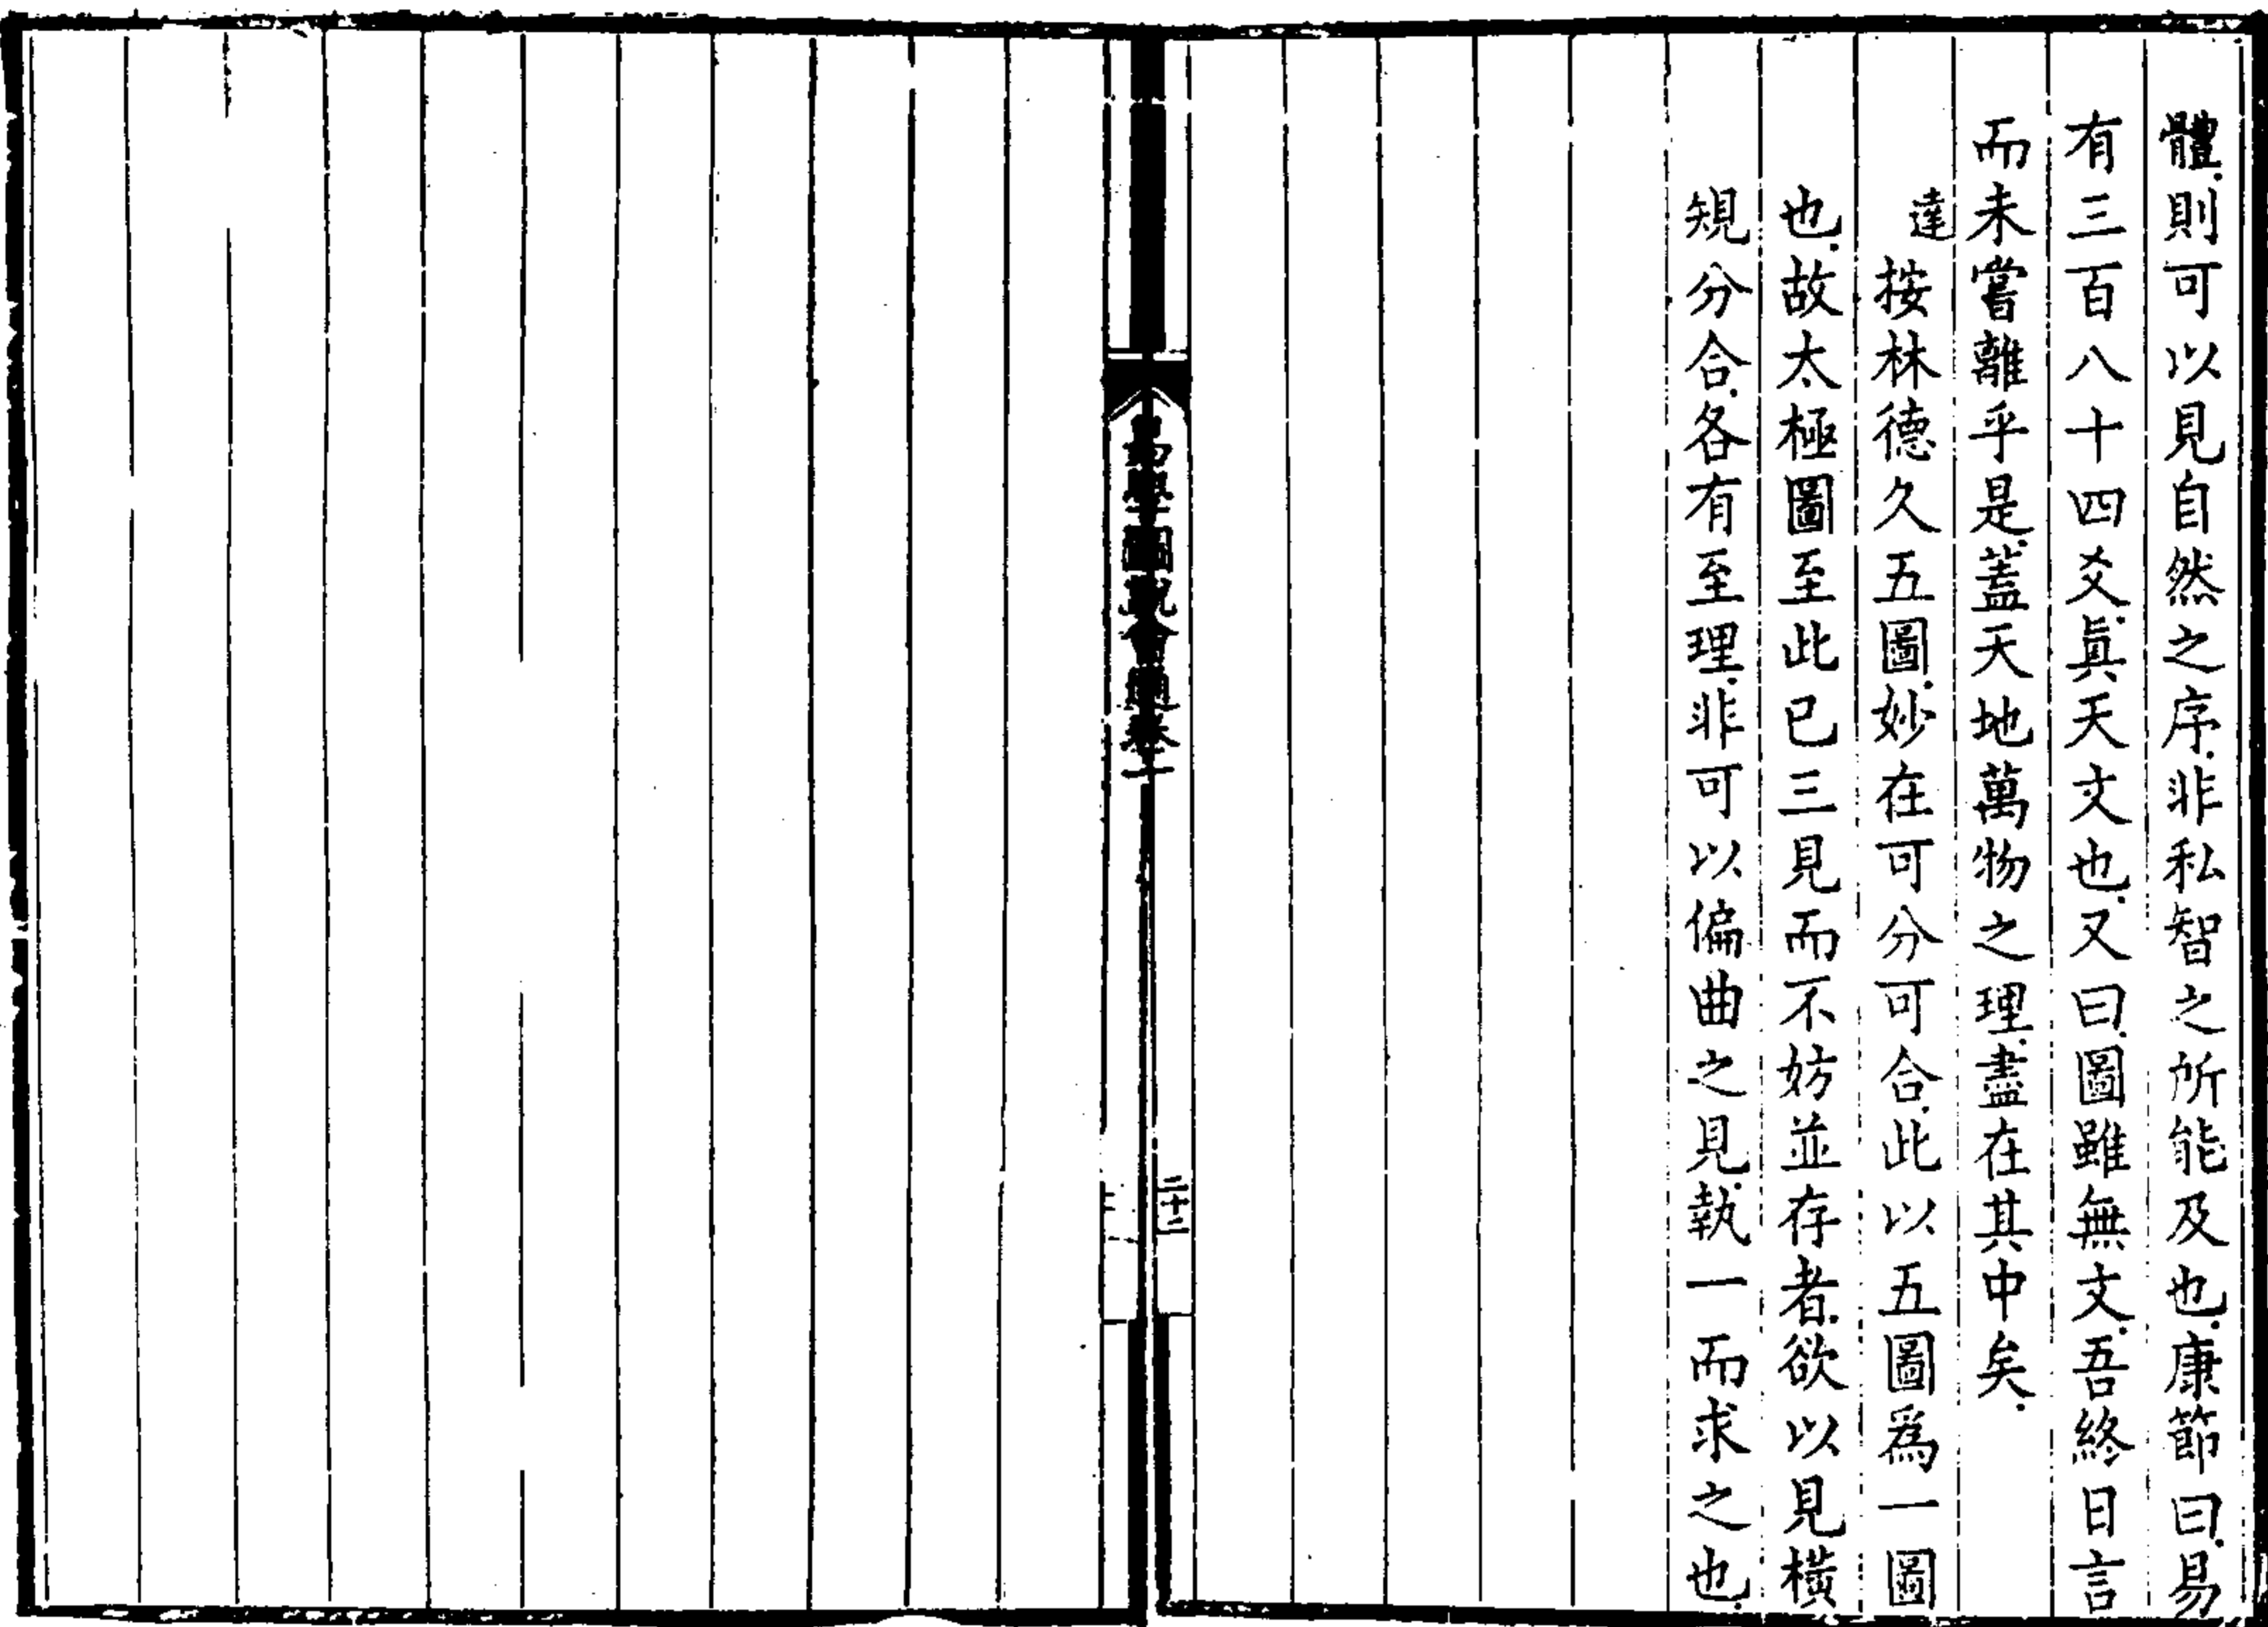 體則可以見自然之序非私智之所能及也康節曰易
有三百八十四爻眞天文也又曰圖雖無文吾終日言
而未嘗離乎是蓋天地萬物之理盡在其中矣
達按林德久五圖妙在可分可合此以五圖爲一圖
也故太極圖至此已三見而不妨並存者欲以見橫
規分合各有至理非可以偏曲之見執一而求之也
易學圖說會通卷七
二十二